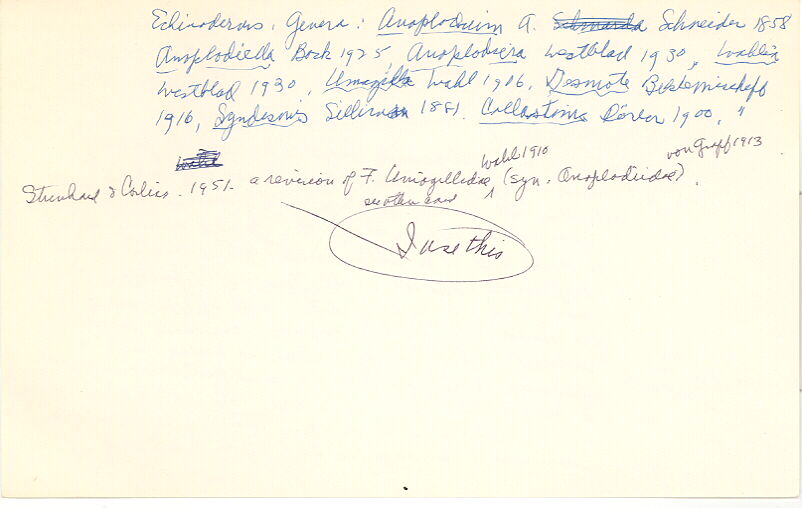 Echinoderms. Genera: Anoplodium A. Schmarda Schneider 1858
Anoplodiella Bock 1925, Anoplodiera Westblad 1930, Wahlia
Westblad 1930, Umagilla Wahl 1906, Desmote Beklemischeff
1916, Syndesmis Silliman 1881. Collastoma Dörler 1900, "
Wahl
Wahl 1910 von Graff 1913
1951. a revision of F. Umagillidae ^ (syn. Anoplodiidae).
see other card
I use this